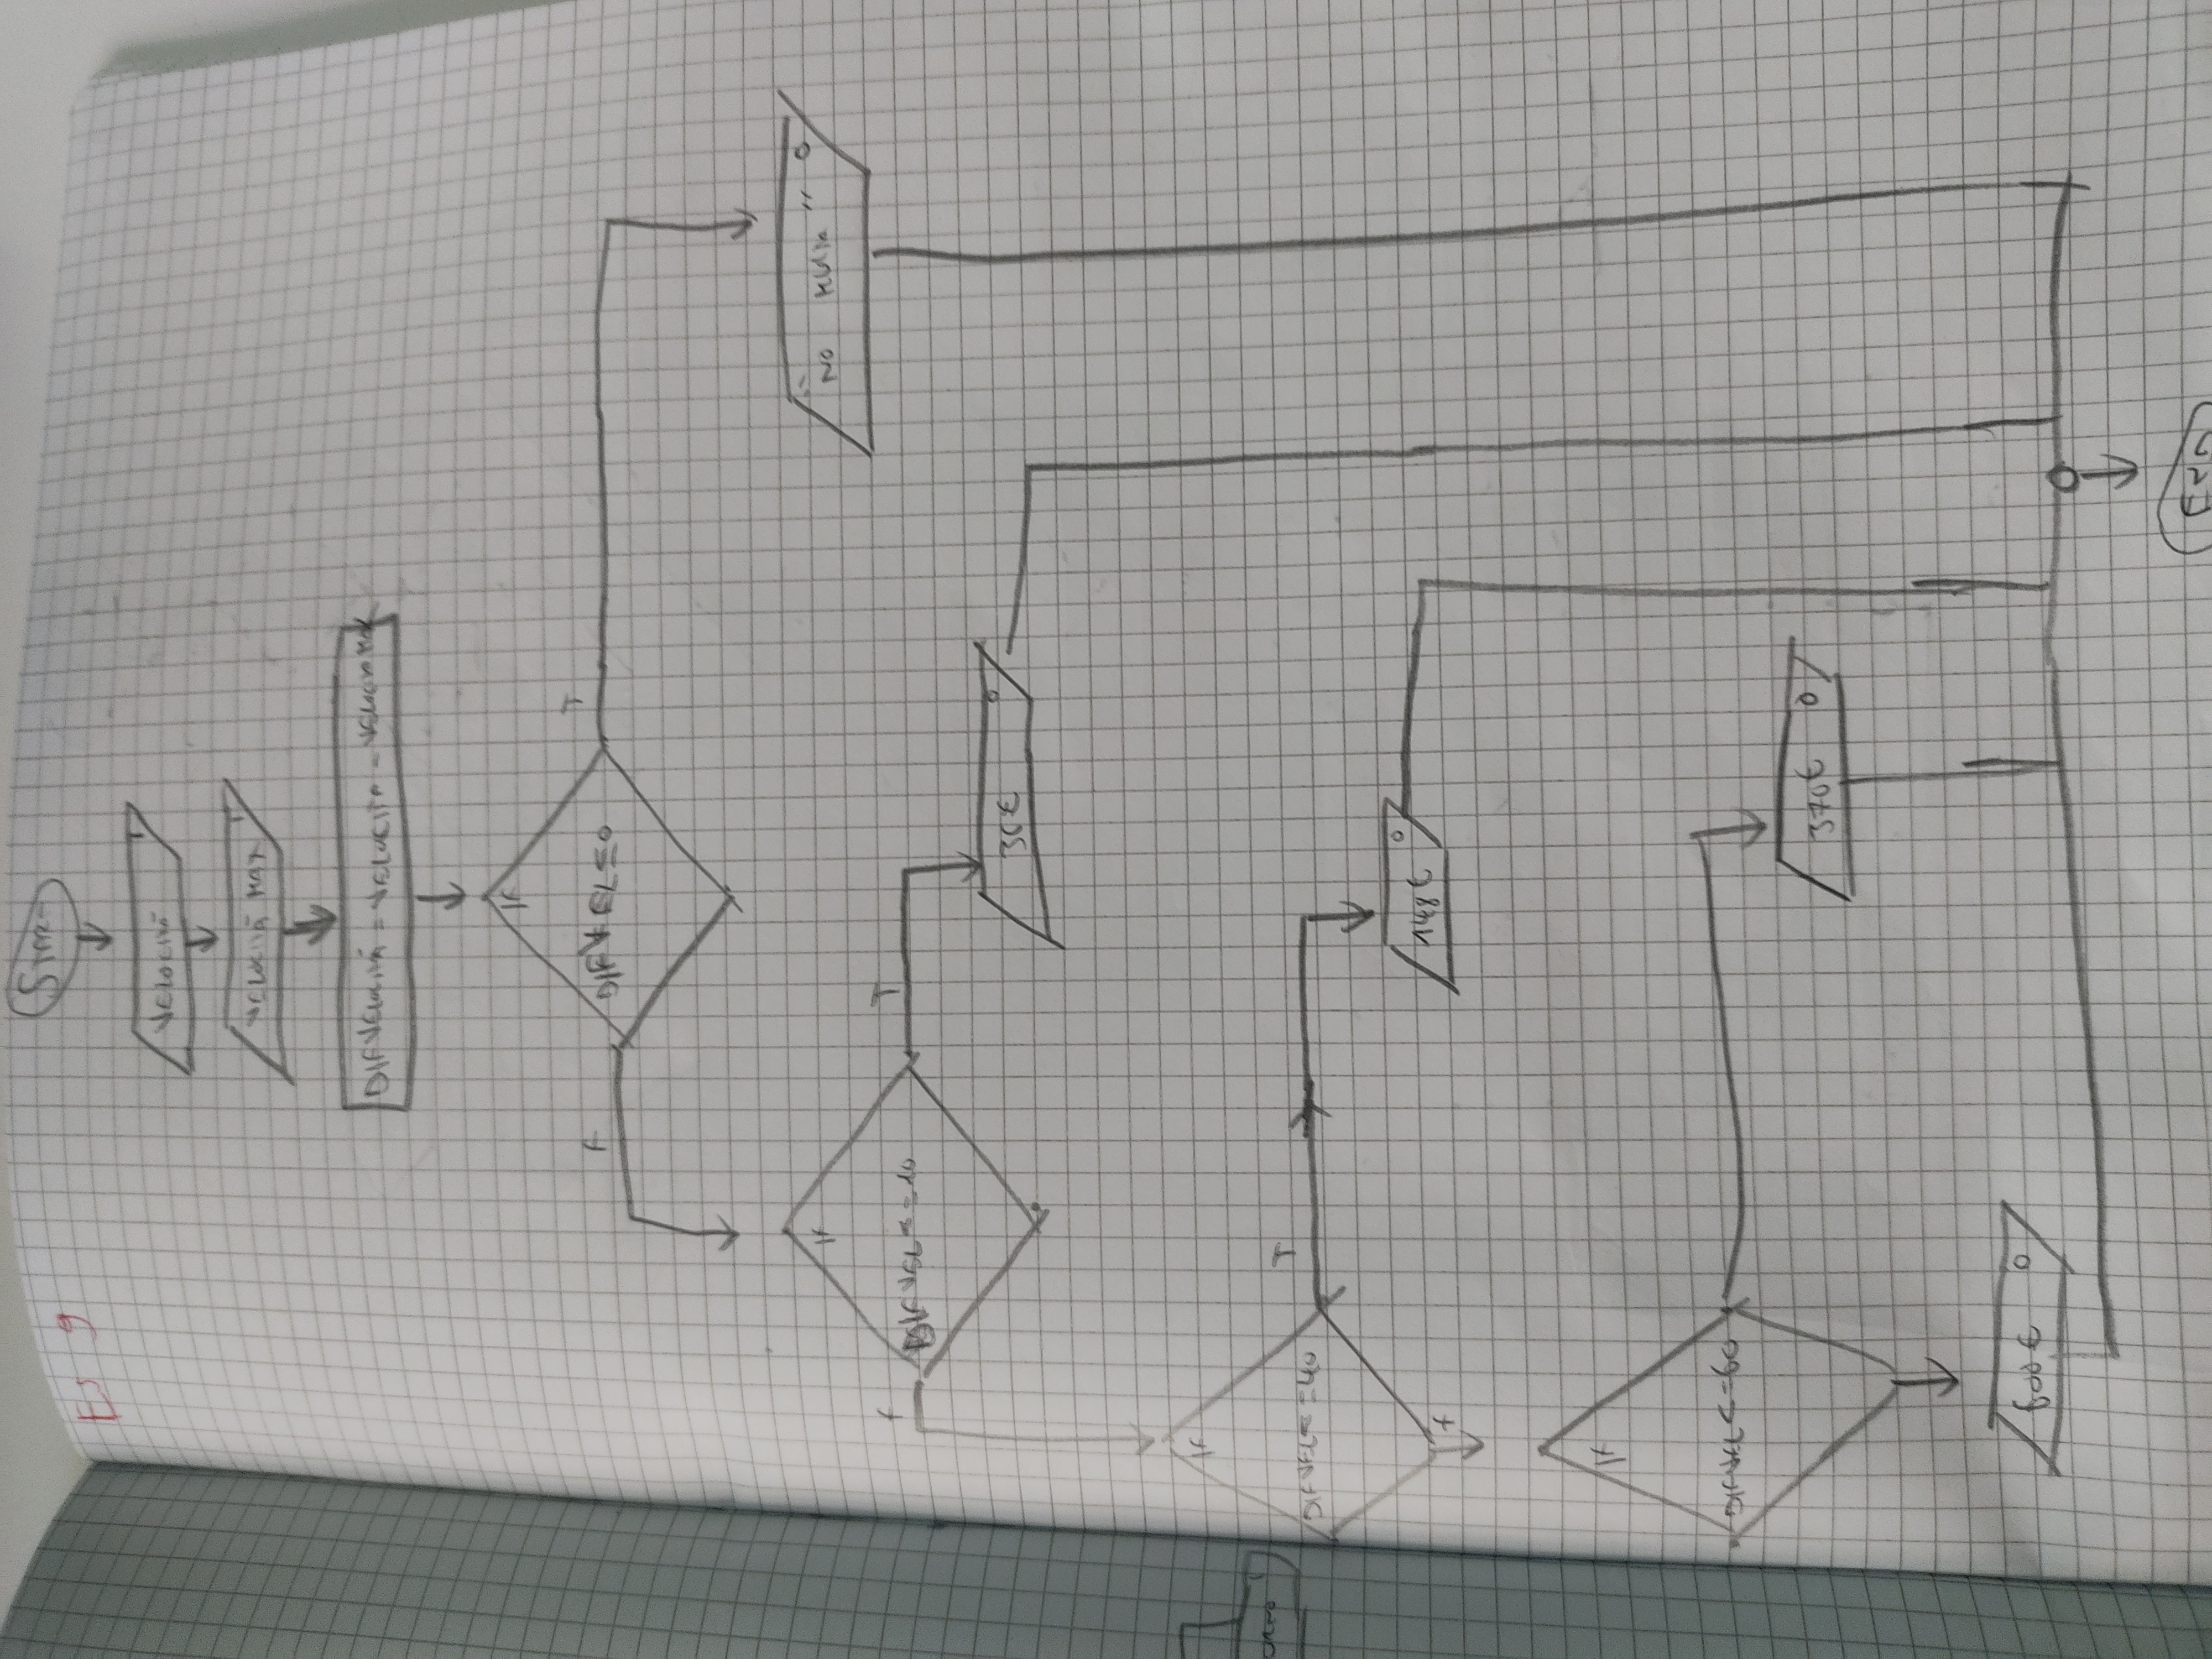 Es 9
Start
VELOCITÀ I
VELOCITÀ MAX I
DIFVELOCITÀ = VELOCITÀ - VELOCITÀ MAX
IF
DIFVEL<=0
F
T
"NO MULTA" O
IF
DIFVEL<=10
F
T
35€ O
IF
DIFVEL<=40
T
F
148€ O
IF
DIFVEL<=60
370€ O
600€ O